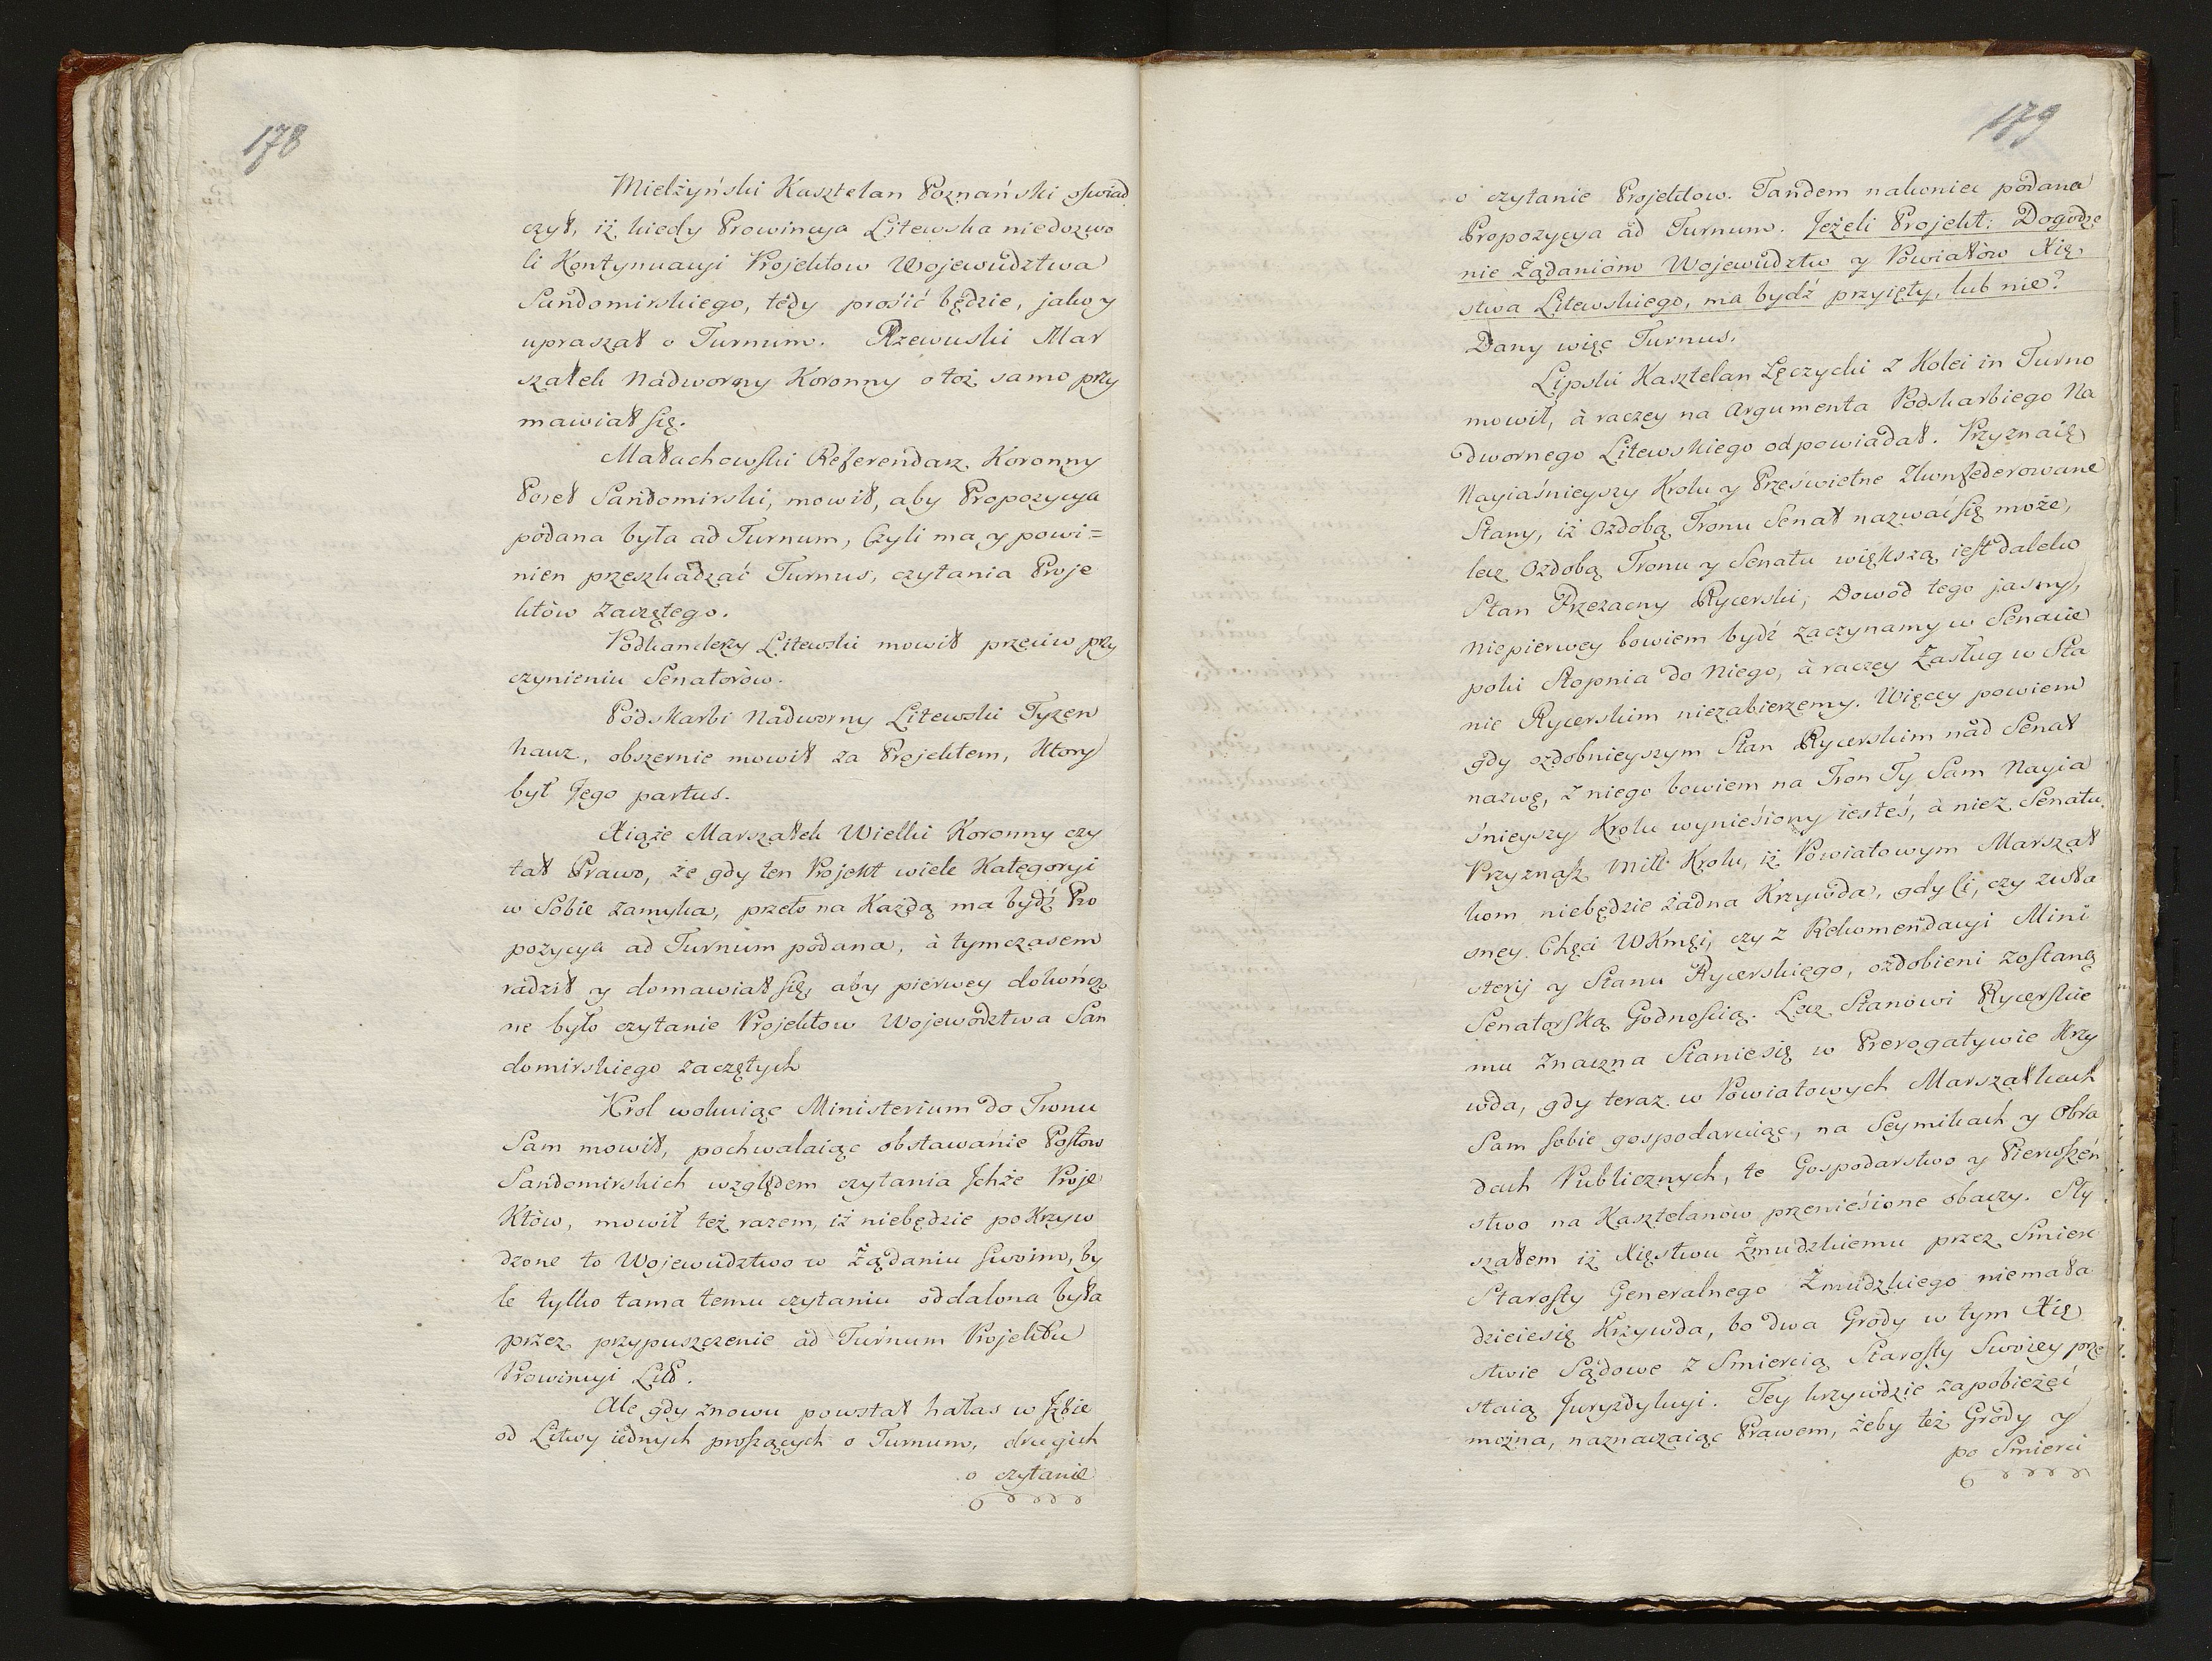 178
Mielżyński Kasztelan Poznański oswiad
czył, iż kiedy Prowincya Litewska niedozwo
li Kontynuacyi Projektow Wojewůdztwa
Sandomirskiego, tedy prośić będzie, jako y
upraszał o Turnum. Rzewuski Mar
szałek Nadworny Koronny o toż samo przy
mawiał się.
Małachowski Referendarz Koronny
Poseł Sandomirski, mowił, aby Propozycya
podana była ad Turnum, Czyli ma y powi=
nien przeszkadzać Turnus, czytania Proje
któw zaczętego.
Podkanclerzy Litewski mowił przeciw przy
czynieniu Senatorów.
Podskarbi Nadworny Litewski Tyzen
hauz, obszernie mowił za Projektem, Ktory
był Jego partus.
Xiąże Marszałek Wielki Koronny czy
tał Prawo, że gdy ten Projekt wiele Kategoryi
w Sobie zamyka, przeto na Każdą ma bydź Pro
pozycya ad Turnum podana, à tymczasem
radził y domawiał się, aby pierwey dokończo
ne było czytanie Projektow Wojewodztwa San
domirskiego zaczętych
Krol wokuiąc Ministerium do Tronu
Sam mowił, pochwalaiąc obstawanie Posłow
Sandomirskich względem czytania Jchże Proje
Któw, mowił też razem, iż niebędzie poKrzyw
dzone to Wojewůdztwo w Żądaniu swoim, by
le tylko tama temu czytaniu oddalona była
przez przypuszczenie ad Turnum Projektu
Prowincyi Litt.
Ale gdy znowu powstał hałas w Jzbie
od Litwy iednych proszących o Turnum, drugich
o czytanie
179
o czytanie Projektow. Tandem nakoniec podana
Propozycya ad Turnum. Jeżeli Projekt: Dogodze
nie Żądaniom Wojewůdztw y Powiatów Xię
stwa Litewskiego, ma bydź przyięty, lub nie?
Dany więc Turnus.
Lipski Kasztelan Łęczycki z Kolei in Turno
mowił, à raczey na Argumenta Podskarbiego Na
dwornego Litewskiego odpowiadał. Przyznaię
Nayiaśnieyszy Krolu y Prześwietne Skonfederowane
Stany, iż Ozdobą Tronu Senat nazwać się może,
lecz Ozdobą Tronu y Senatu większą iest daleko
Stan Przezacny Rycerski, Dowod tego jasny,
Niepierwey bowiem bydź zaczynamy w Senacie
poki Stopnia do Niego, à raczey Zasług w Sta
nie Rycerskim niezabierzemy. Więcey powiem
gdy ozdobnieyszym Stan Rycerskim nad Senat
nazwę, z niego bowiem na Tron Ty Sam Nayia
śnieyszy Krolu wynieśiony iesteś, à nie z Senatu.
Przyznasz Mił: Krolu, iż Powiatowym Marszał
kom niebędzie żadna Krzywda, gdy ci, czy zwła
sney Chęci WKmći, czy z Rekomendacyi Mini
sterij y Stanu Rycerskiego, ozdobieni zostaną
Senatorską Godnoscią. Lecz Stanowi Rycerskie
mu znaczna Stanie się w Prerogatywie Krzy
wda, gdy teraz w Powiatowych Marszałkach
Sam sobie gospodaruiąc, na Seymikach y Obra
dach Publicznych, te Gospodarstwo y Pierwszeń
stwo na Kasztelanow przenieśione obaczy. Sły
szałem iż Xięstwu Żmudzkiemu przez Smierc
Starosty Generalnego Żmudzkiego niemała
dzieiesię Krzywda, bo dwa Grody w tym Xię
stwie Sądowe z Smiercią Starosty Swoiey prze
staią Juryzdykcyi. Tey krzywdzie zapobieżeć
można, naznaczaiąc Prawem, żeby też Grody y
po Smierci